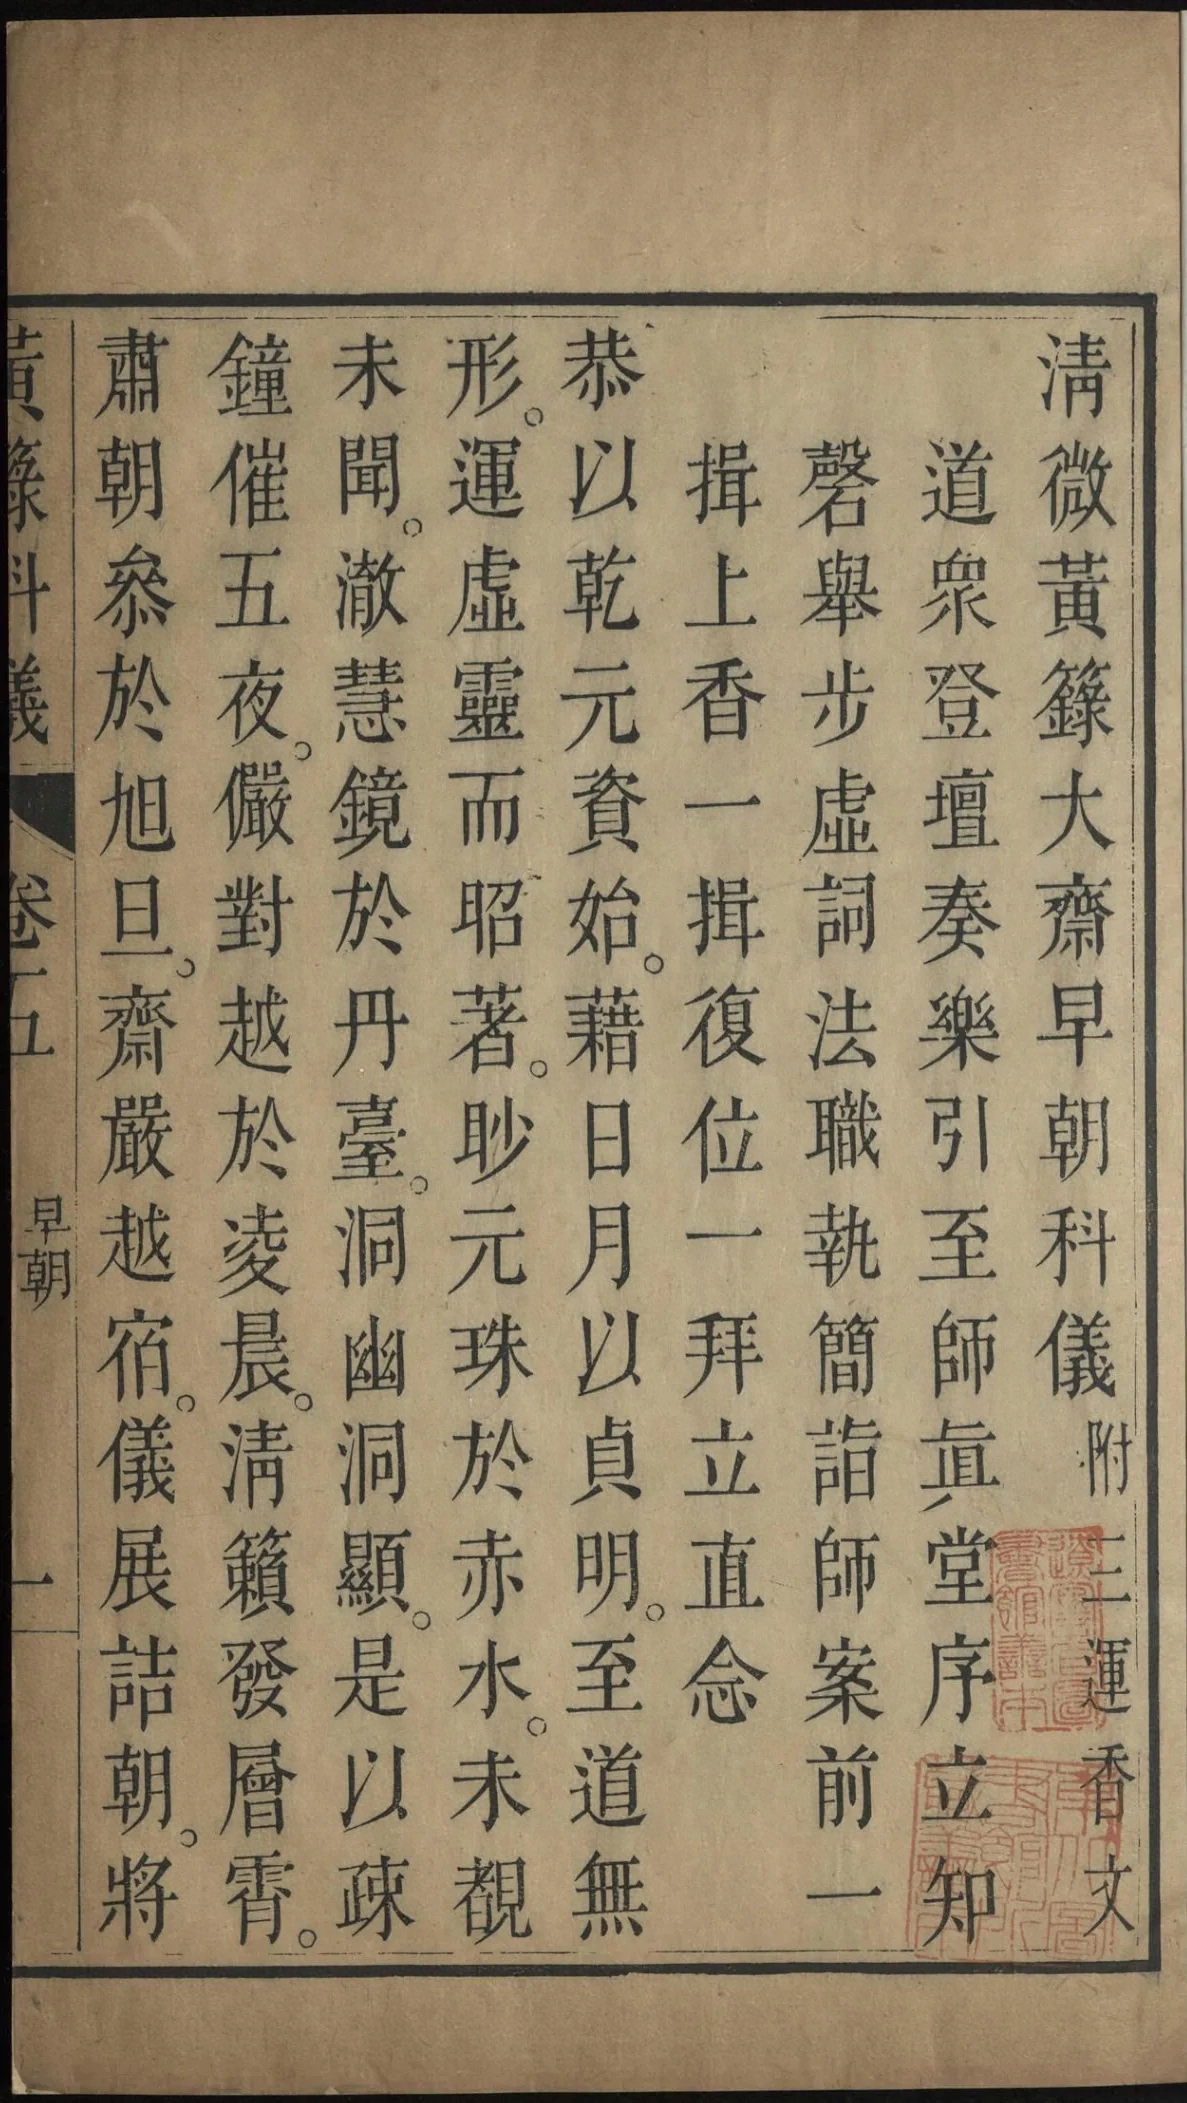 清微黃籙大齋早朝科儀附三運香文
道眾登壇奏樂引至師眞堂序立知
磬舉步虛詞法職執簡詣師案前一
揖上香一揖復位一拜立直念
恭以乾元資始。藉日月以貞明。至道無
形。運虛靈而昭著。眇元珠於赤水。未覩
未聞。澈慧鏡於丹臺。洞幽洞顯。是以疎
鐘催五夜。儼對越於凌晨。清籟發層霄。
肅朝叅於旭旦。齋嚴越宿。儀展詰朝。將
黃籙科儀 卷五 早朝 一